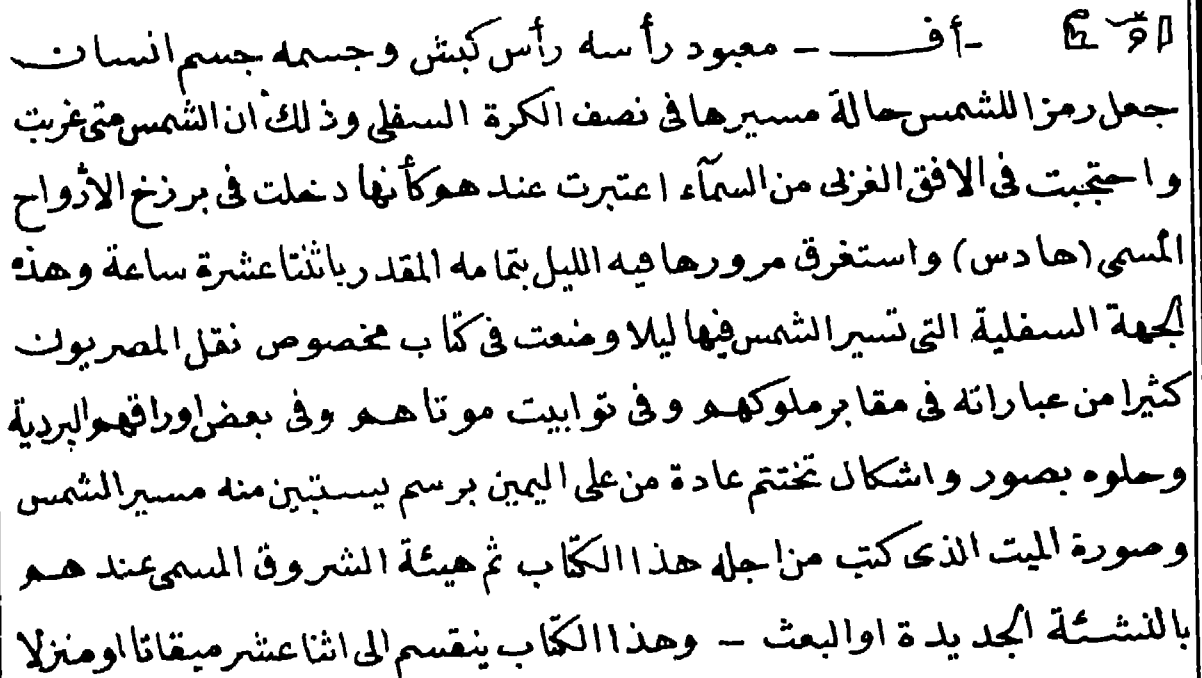 -أفــ - معبود رأسه رأس كبش وجسمه جسم انسان
جعل رمزا للشمس حالة مسيرها فى نصف الكرة السفلى وذلك ان الشمس متى غربت
واحتجبت فى الافق الغربى من السمآء اعتبرت عندهم كأنها دخلت فى برزخ الأرواح
المسمى (هادس) واستغرق مرورها فيه الليل بتمامه المقدر باثنتا عشرة ساعة وهذه
الجهة السفلية التى تسير الشمس فيها ليلا وضعت فى كتاب مخصوص نقل المصريون
كثيرا من عباراته فى مقابر ملوكهم وفى توابيت موتاهم وفى بعض اوراقهم البردية
وحلوه بصور واشكال تختتم عادة من على اليمين برسم يستبين منه مسير الشمس
وصورة الميت الذى كتب من اجله هذا الكتاب ثم هيئة الشروق المسمى عندهم
بالنشئة الجديدة او البعث - وهذا الكتاب ينقسم الى اثنا عشر ميقاتا او منزلا